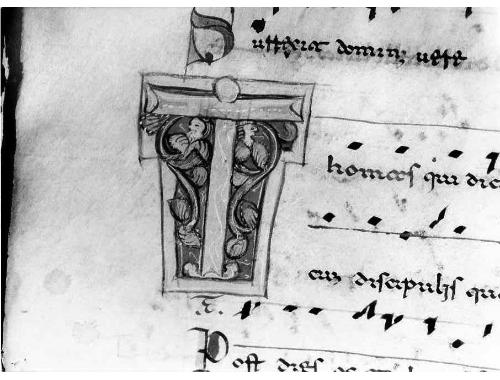 Surrexit dominus uere
Thomas qui dic
cum discipulis qu
Post dies oc